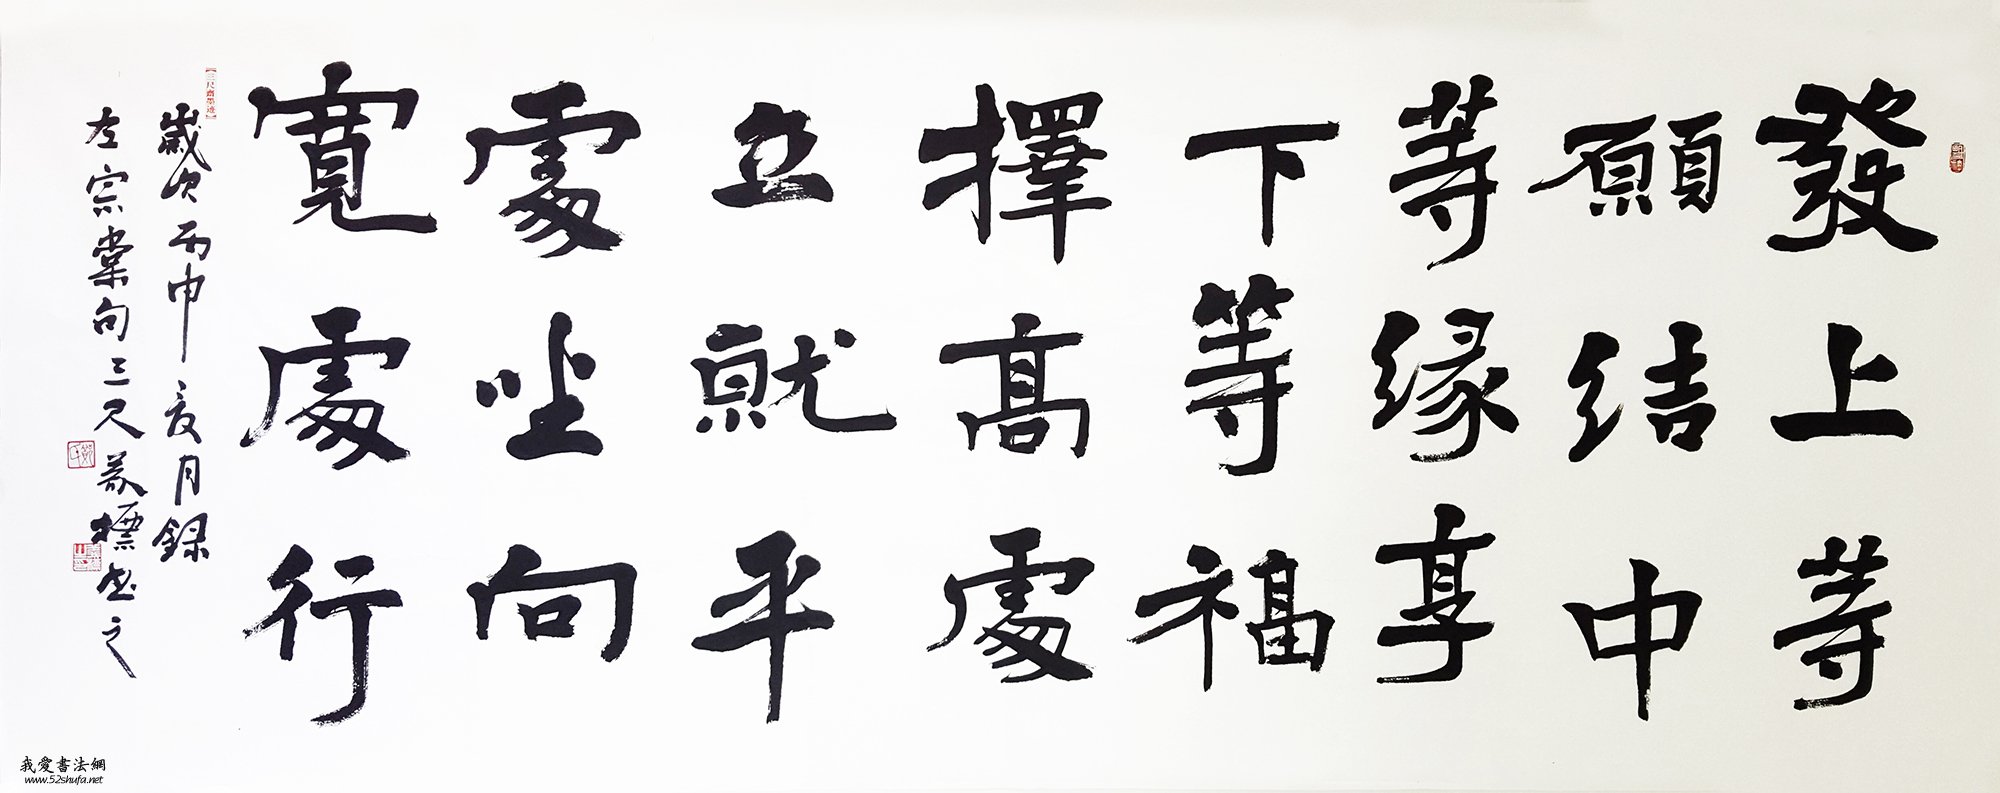 發上等
願結中
等緣享
下等福
擇高處
立就平
處坐向
寬處行
【三尺齋墨迹】
歲次丙申夏月錄
左宗棠句三尺標書之
我愛書法網
www.52shufa.net